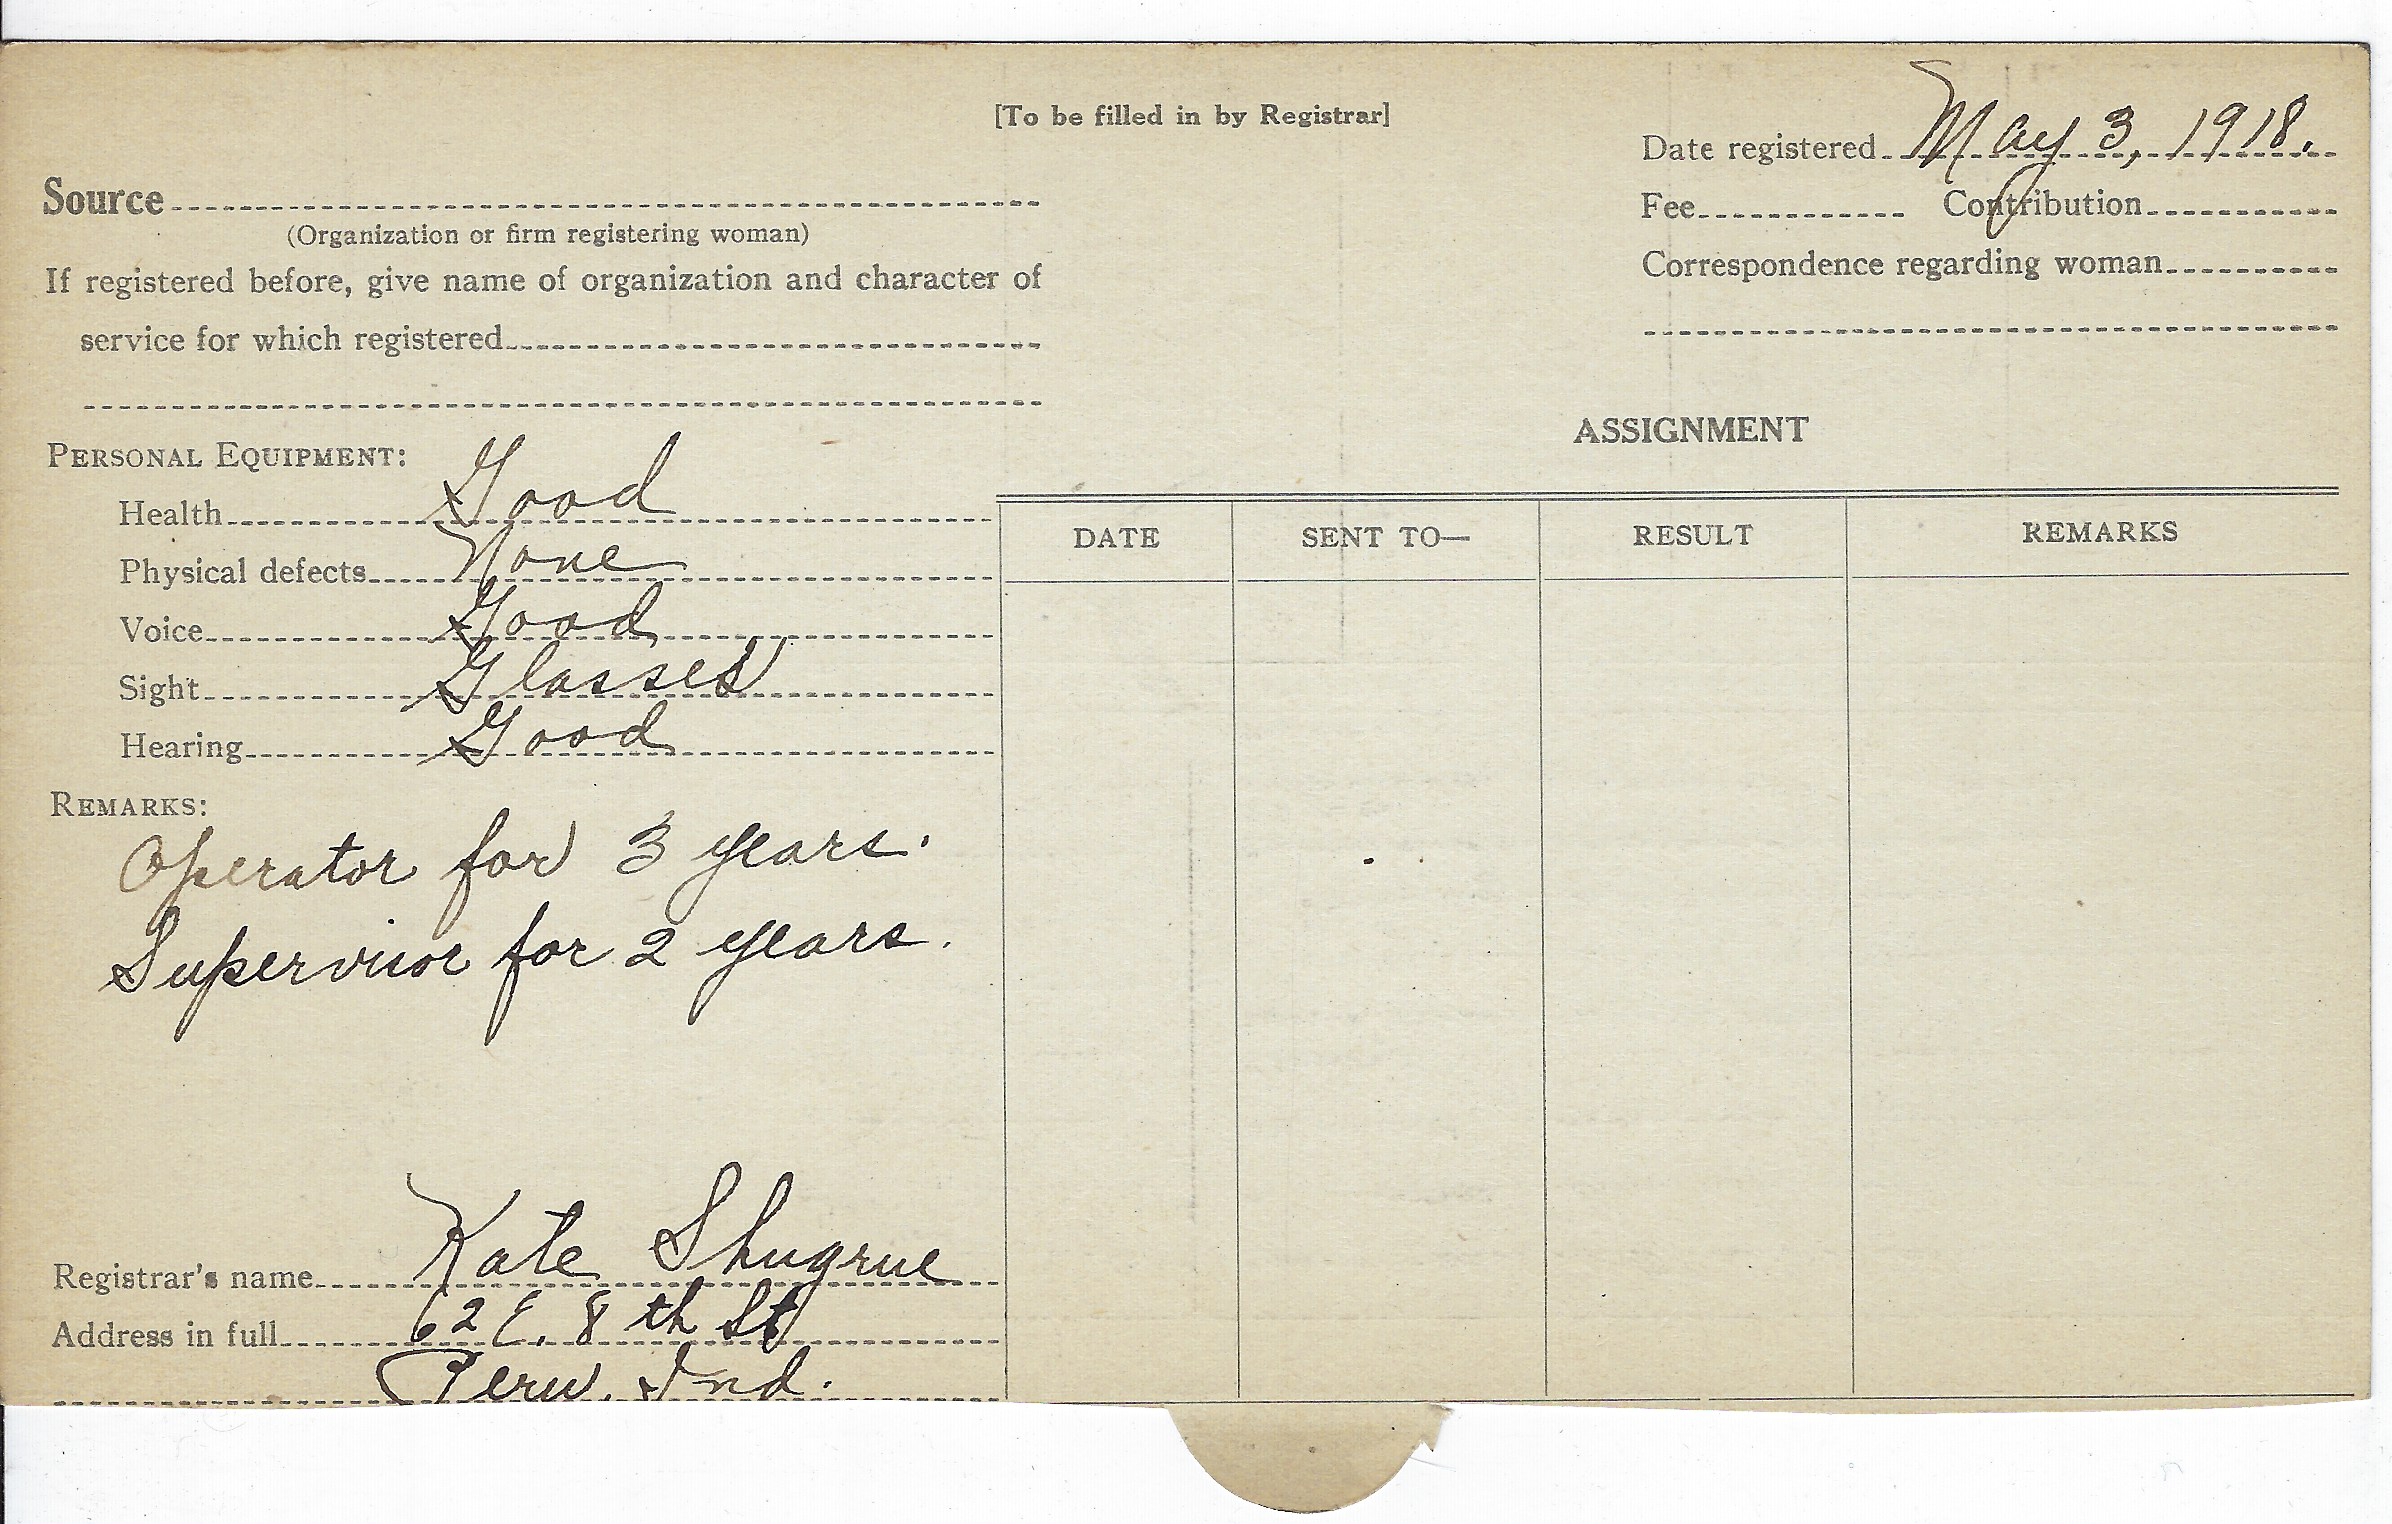 [To be filled in by Registrar]
Date registered May 3, 1918.
Source
(Organization or firm registering woman)
Fee Contribution
If registered before, give name of organization and character of
service for which registered
Correspondence regarding woman
PERSONAL EQUIPMENT:
Health Good
Physical defects None
Voice Good
Sight Glasses
Hearing Good
REMARKS:
Operator for 3 years.
Supervisor for 2 years.
Registrar's name Kate Shugrue
Address in full 62 E. 8th St
Peru, Ind.
ASSIGNMENT
DATE SENT TO— RESULT REMARKS